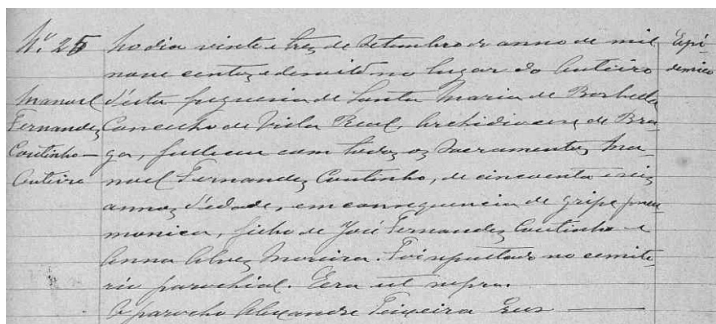 Nº 25
Manoel
Fernandes
Coutinho
Outeiro
No dia vinte e tres de Setembro do anno de mil
nove centos e desoito no lugar do Outeiro
d'esta freguesia de Santa Maria de Borbella
Concelho de Vila Real, Archidiocese de Bra-
ga, faleceu com todos os Sacramentos Ma-
noel Fernandes Coutinho, de cincoenta e seis
annos d'edade, em consequencia de gripe pneu
monica, filho de José Fernandes Coutinho e
Anna Alves Moreira. Foi sepultado no cemite
rio parochial. Era ut supra.
O parocho Alexandre Teixeira
Epi
demico